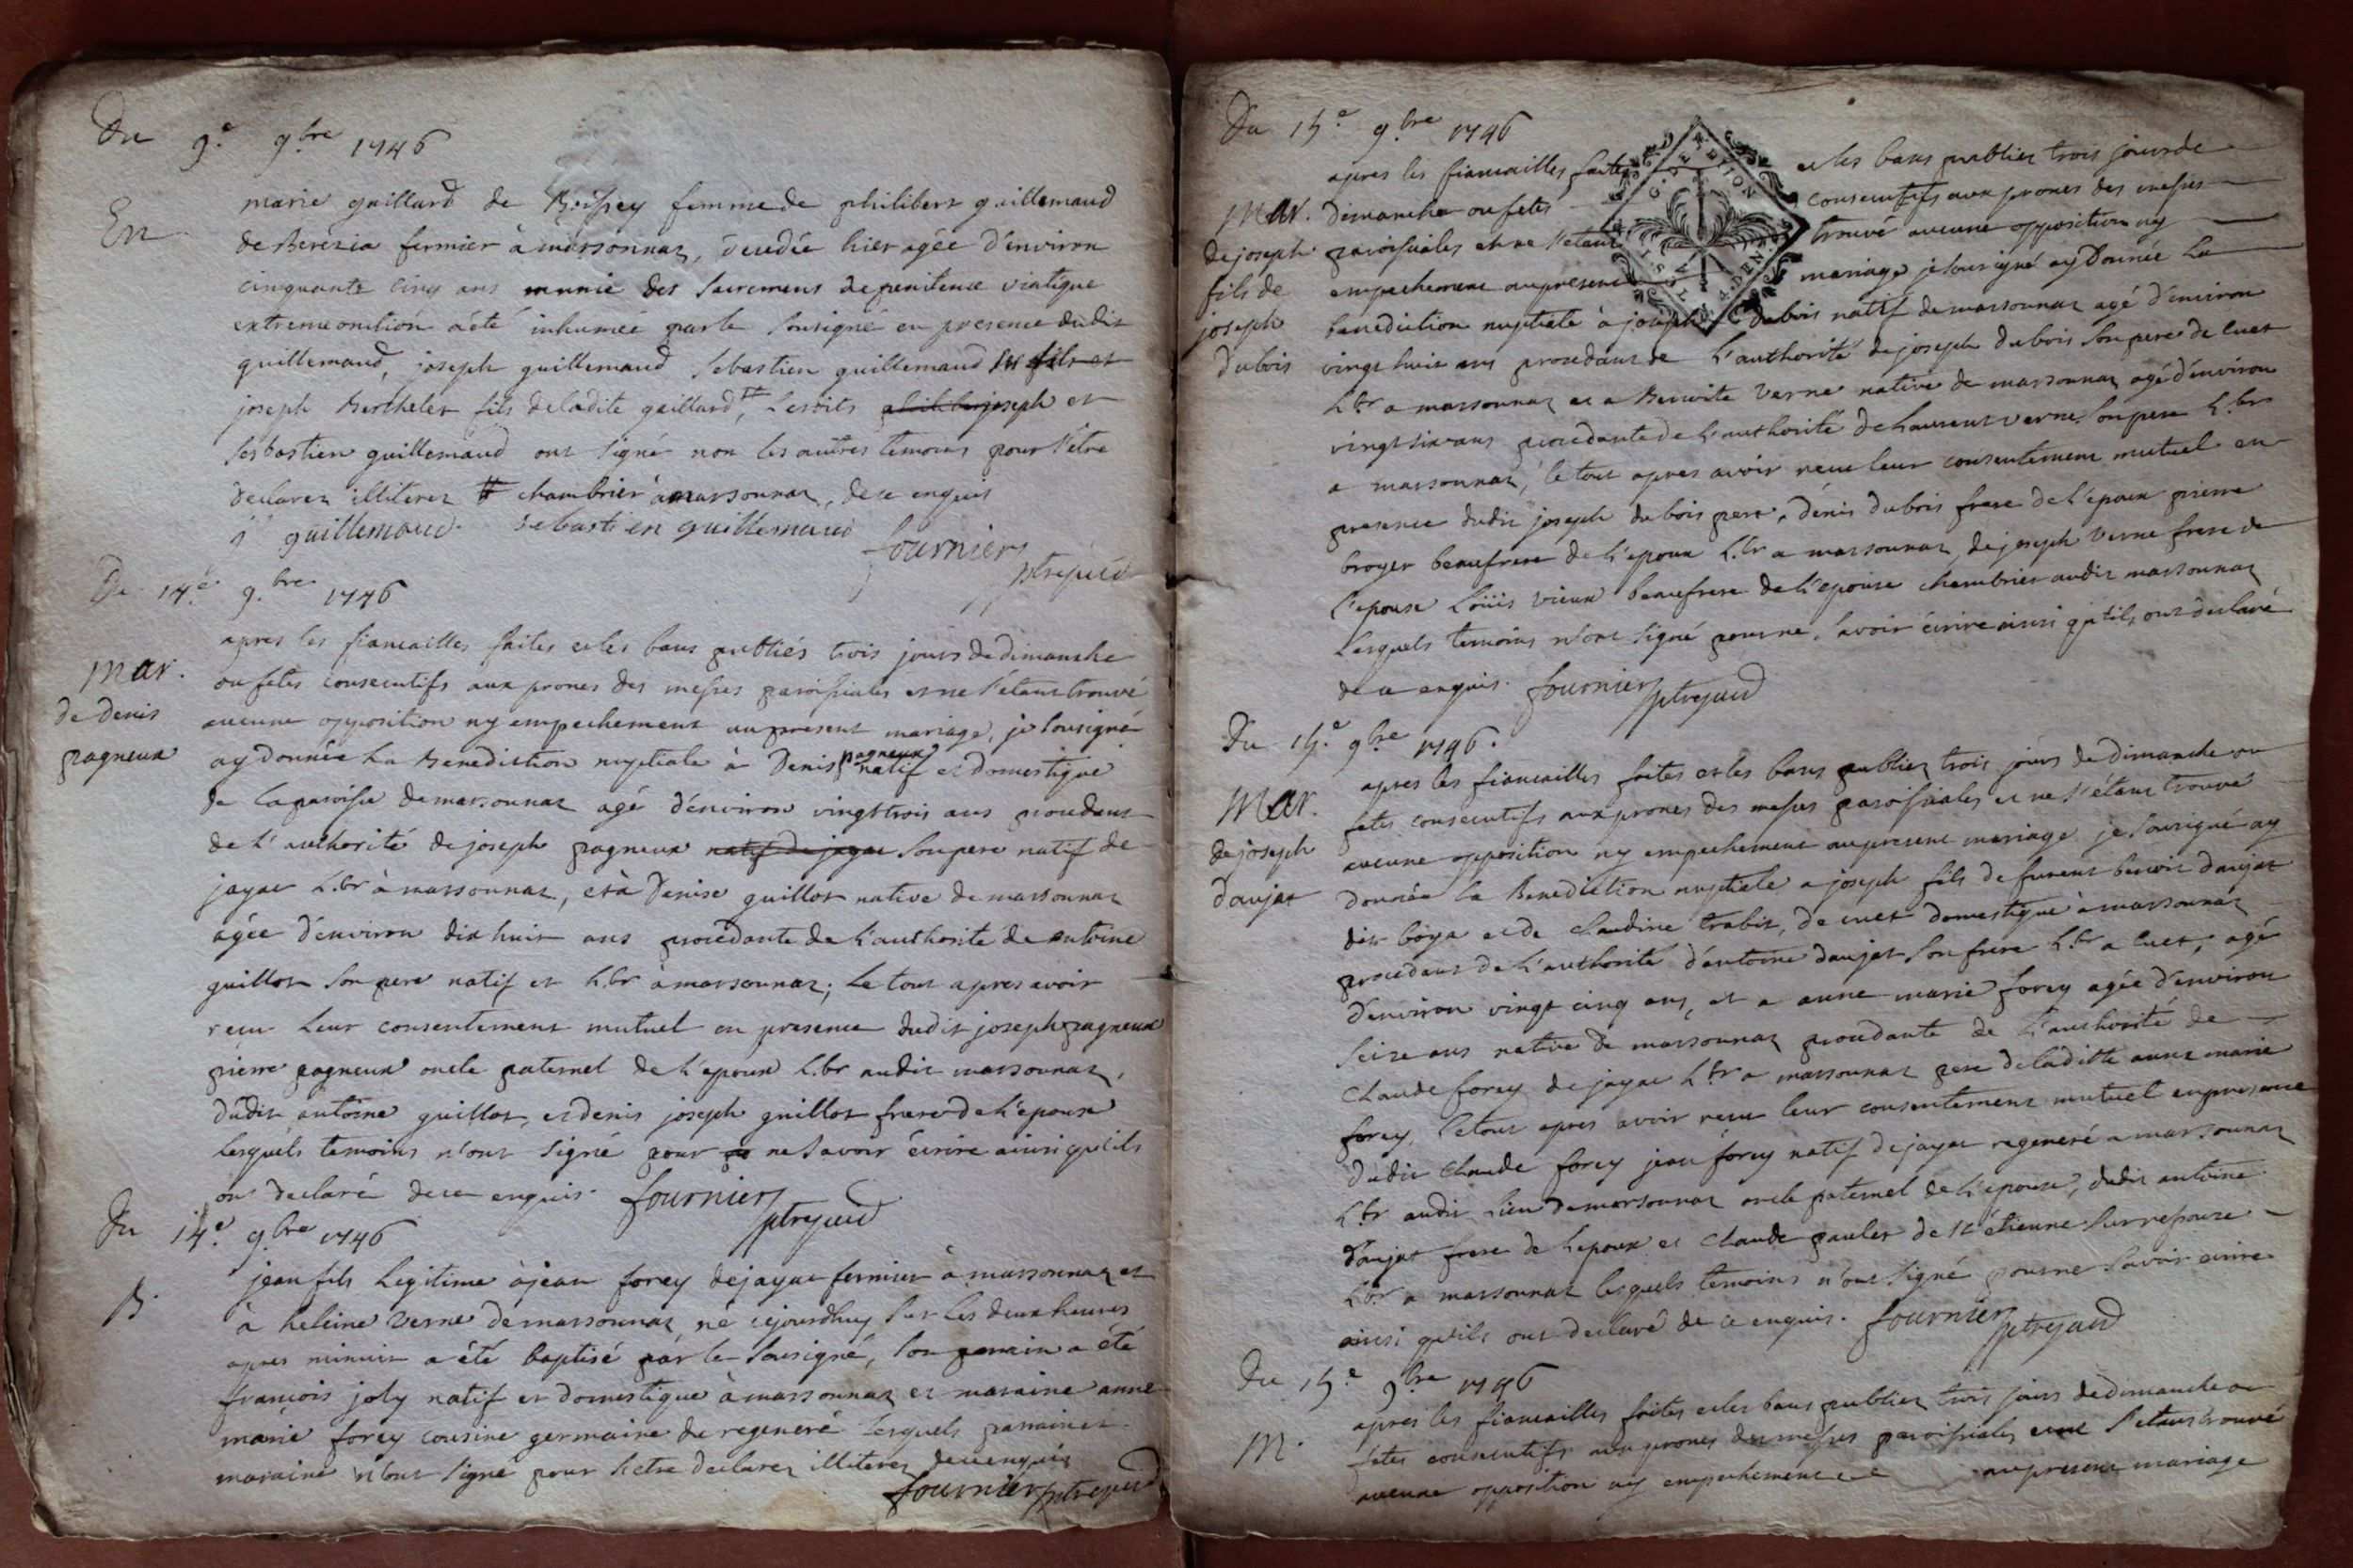 Du 9.e 9.bre 1746
En
marie gaillard de Boissey femme de philibert guillemaud
de Berézia fermier à marsonnaz, décedée hier agée d'environ
cinquante cinq ans munie des sacremens de penitence viatique
extreme onction a été inhumée par le sousigné en presence dudit
guillemaud, joseph guillemaud sebastien guillemaud ses fils et
joseph Berthelet fils de ladite gaillard #, lesdits philibert joseph et
sebastien guillemaud ont signé non les autres temoins pour s'etre
declarez illiterez # chambrier à marsonnaz, de ce enquis
j guillemaud. sebastien guillemaud
fournier ptre curé
Du 14.e 9.bre 1746
mar.
de denis
pagneux
apres les fiancailles faites et les bans publiés trois jours de dimanche
ou fetes consecutifs aux prones des messes paroissiales et ne s'etant trouvé
aucune opposition ny empechement au present mariage, je sousigné
ay donnée la Benediction nuptiale à Denis pagneux natif et domestique
de la paroisse de marsonnaz agé d'environ vingt trois ans procedant
de l'authorité de joseph pagneux natif de jayac son pere natif de
jayac h.br à marsonnaz, et à Denise guillot native de marsonnaz
agée d'environ dix huit ans procedante de l'authorité de antoine
guillot son pere natif et h.br à marsonnaz; le tout apres avoir
recu leur consentement mutuel en presence dudit joseph pagneux
pierre pagneux oncle paternel de l'epoux h.br audit marsonnaz,
dudit antoine guillot, et denis joseph guillot frere de l'epouse
lesquels temoins n'ont signé pour ne savoir écrire ainsi qu'ils
ont declaré de ce enquis. fournier ptre curé
Du 14.e 9.bre 1746
B.
jean fils legitime à jean forey de jayac fermier à marsonnaz et
à heleine Verne de marsonnaz né cejourdhuy sur les deux heures
apres minuit a été baptisé par le sousigné, son parrain a été
francois joly natif et domestique à marsonnaz et maraine anne
marie forey cousine germaine du regeneré lesquels parrain et
maraine n'ont signé pour s'etre declarez illiterez de ce enquis
fournier ptre curé
Du 15.e 9.bre 1746
mar.
de joseph
fils de
joseph
dubois
apres les fiancailles faites et les bans publiez trois jours de
dimanche ou fetes consecutifs aux prones des messes
paroissiales et ne s'etant trouvé aucune opposition ny
empechement au present mariage je sousigné ay donnée la
benediction nuptiale à joseph dubois natif de marsonnaz agé d'environ
vingt huit ans procedant de l'authorité de joseph dubois son pere de cuet
h.br a marsonnaz et a Benoite Verne native de marsonnaz agé d'environ
vingt six ans procedante de l'authorité de laurent verne son pere h.br
a marsonnaz, le tout apres avoir receu leur consentement mutuel en
presence dudit joseph dubois pere, denis dubois frere de l'epoux pierre
broyer beaufrere de l'epoux h.br a marsonnaz, de joseph Verne frere de
l'epouse loüis vieux beaufrere de l'epouse chambrier audit marsonnaz
lesquels temoins n'ont signé pour ne savoir écrire ainsi qu'ils ont declaré
de ce enquis. fournier ptre curé
Du 15.e 9.bre 1746.
mar.
de joseph
daujat
apres les fiancailles faites et les bans publiez trois jours de dimanche ou
fetes consecutifs aux prones des messes paroissiales et ne s'étant trouvé
aucune opposition ny empechement au present mariage je sousigné ay
donnée la Benediction nuptiale a joseph fils de furent benoit daujat
dit boya et de claudine trabit, de cuet domestique à marsonnaz
procedant de l'authorité d'antoine daujat son frere h.br a cuet, agé
d'environ vingt cinq ans, et a anne marie forey agée d'environ
seize ans native de marsonnaz procedante de l'authorité de
claude forey de jayac h.br a marsonnaz pere de laditte anne marie
forey, le tout apres avoir receu leur consentement mutuel en presence
dudit claude forey jean forey natif de jayac regeneré a marsonnaz
h.br audit lieu de marsonnaz oncle paternel de l'epouse, dudit antoine
daujat frere de l'epoux et claude paulet de st étienne sur resouze
h.br a marsonnaz lesquels temoins n'ont signé pour ne savoir écrire
ainsi qu'ils ont declaré de ce enquis. fournier ptre curé
Du 15.e 9.bre 1746
M.
apres les fiancailles faites et les bans publiez trois jours de dimanche ou
fetes consecutifs aux prones des messes paroissiales et ne s'etant trouvé
aucune opposition ny empechement au present mariage